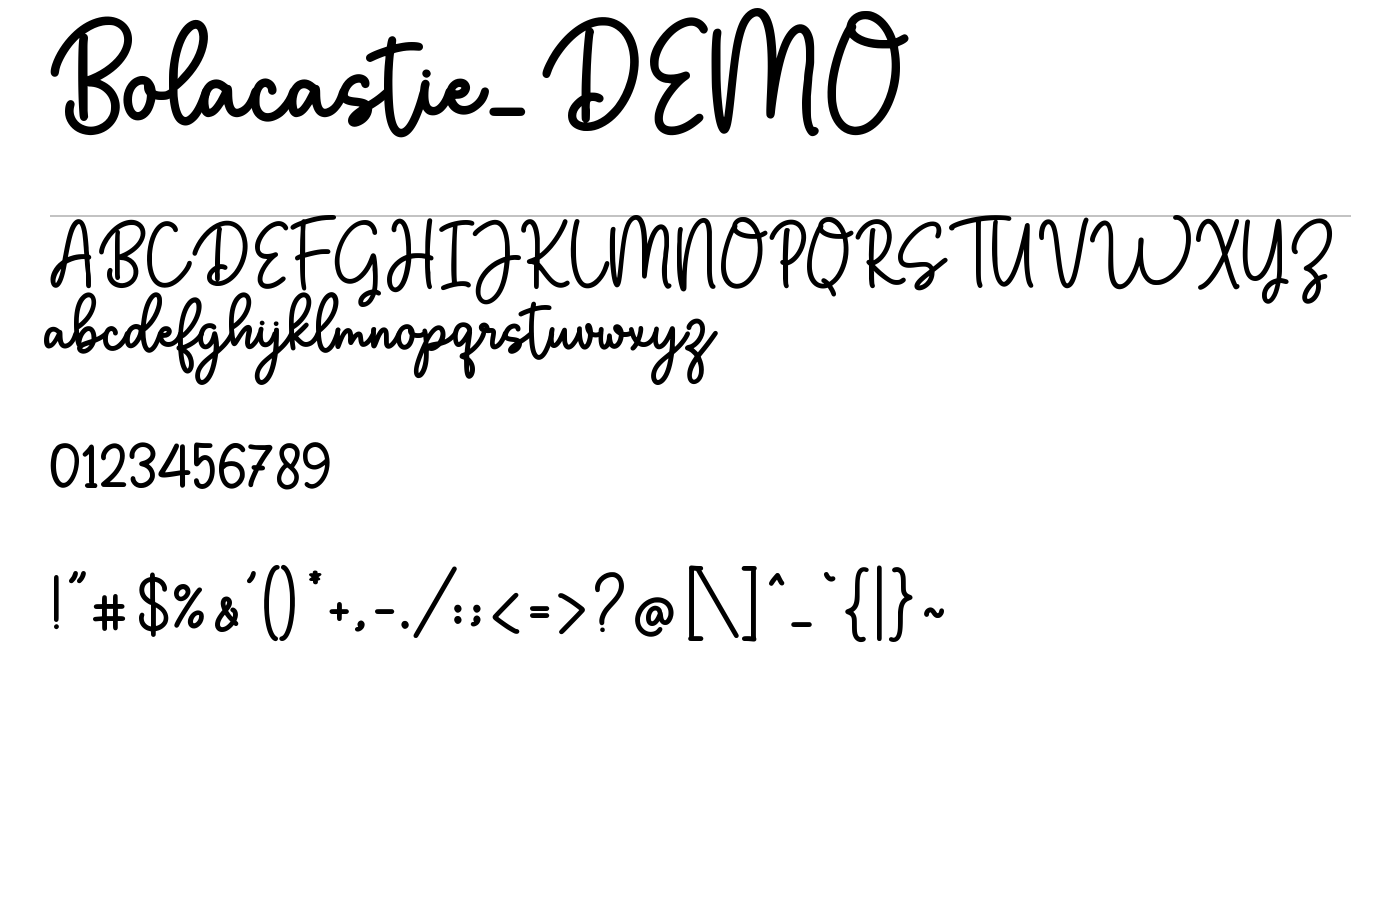 Bolacastie_DEMO
ABCDEFGHIJKLMNOPQRSTUVWXYZ
abcdefghijklmnopqrstuvwxyz
0123456789
!"#$%&'()*+,-./:;<=>?@[\]^_`{|}~